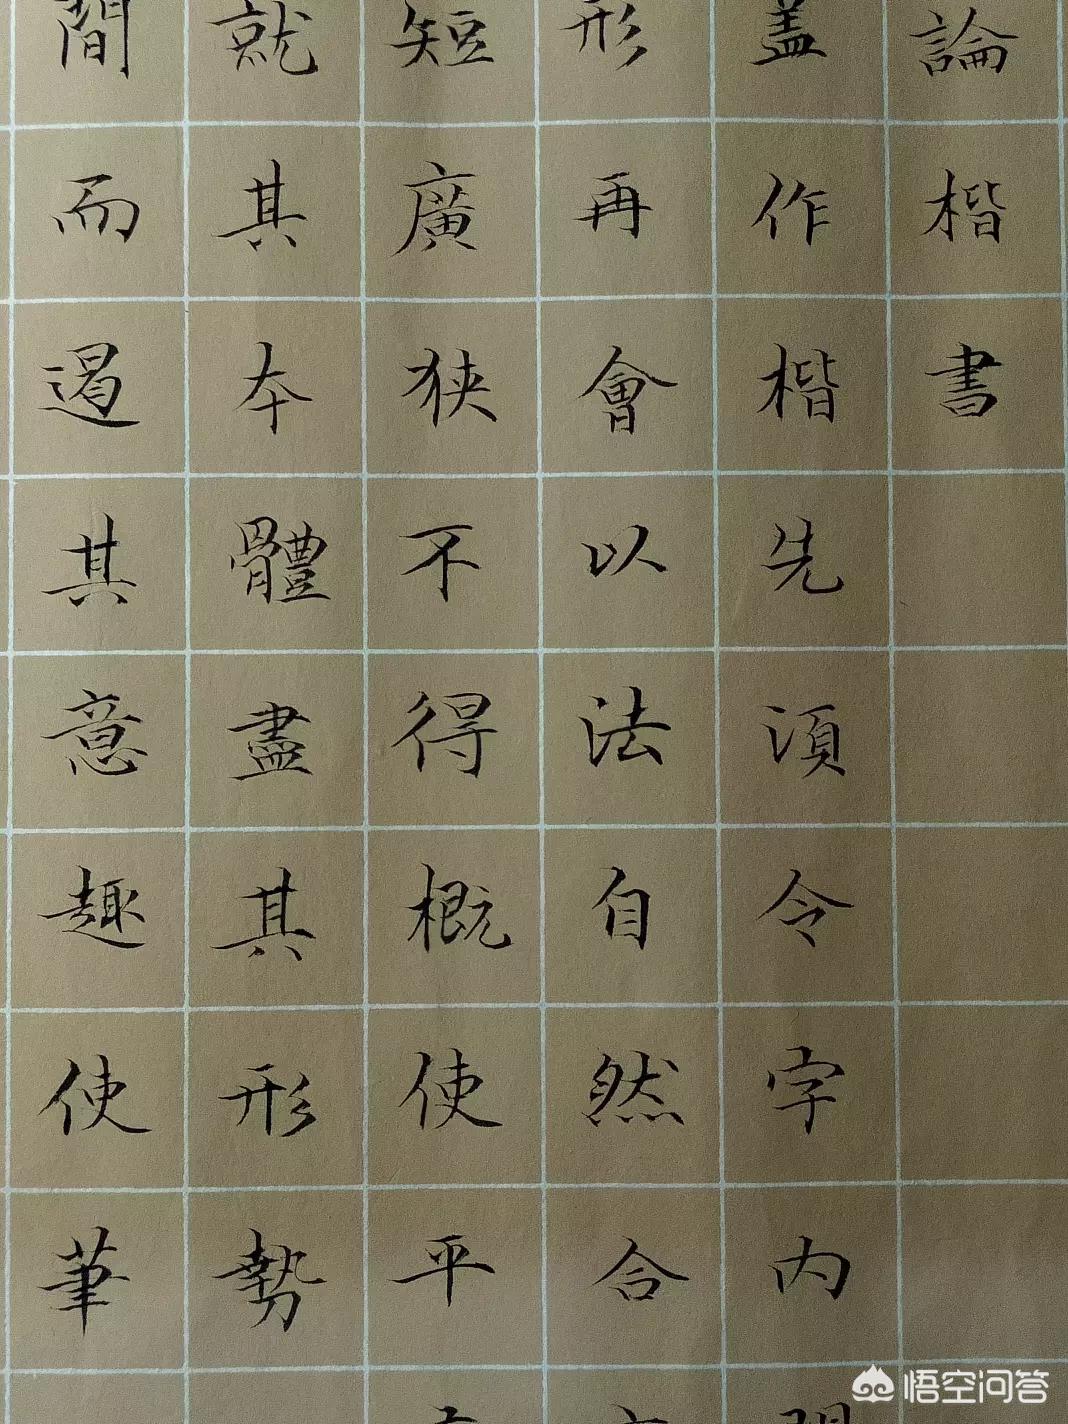 論楷書
盖作楷先須令字内
形再會以法自然合
短廣狹不得概使平
就其本體盡其形勢
間而遏其意趣使筆
悟空问答